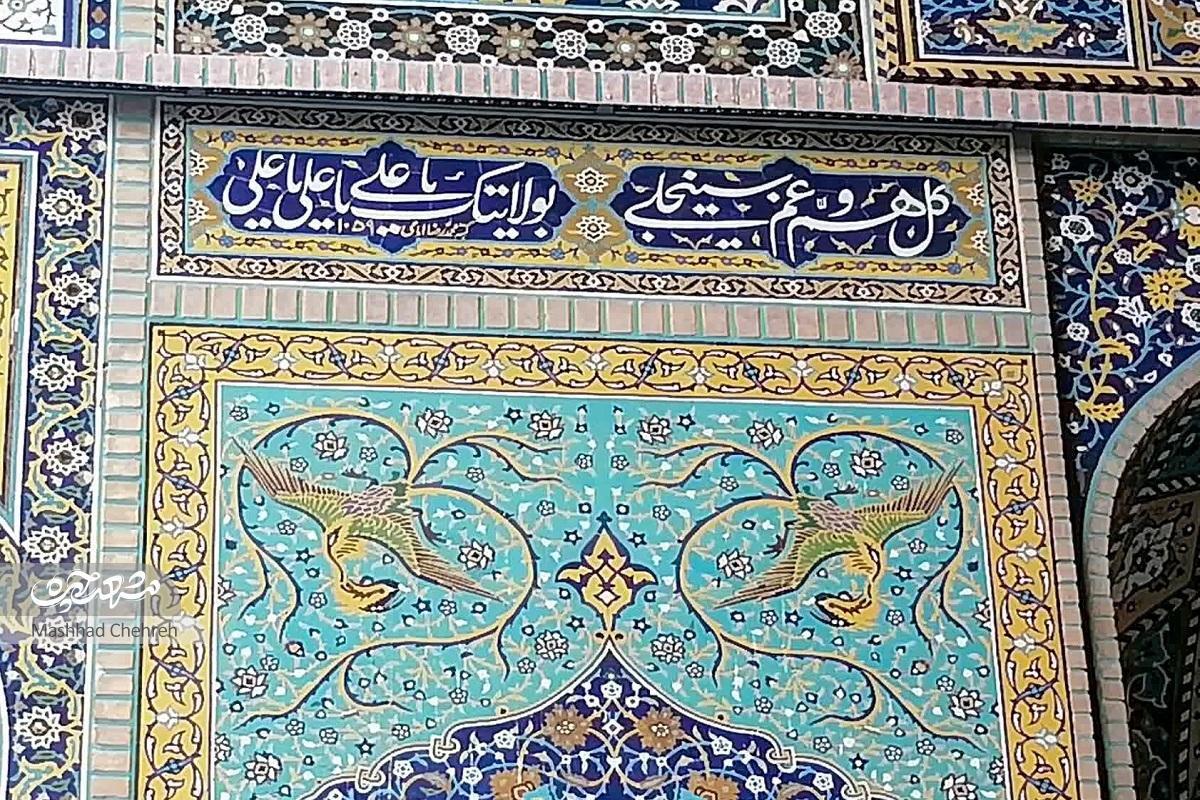 کل هم و غم سینجلی
بولایتک یا علی یا علی یا علی
۱۰۵۹
مشهدچهره
Mashhad Chehreh